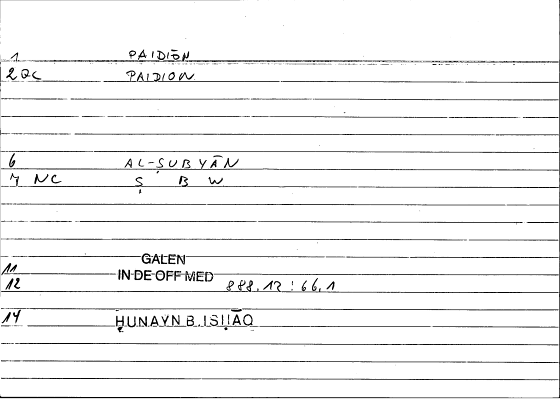 1 PAIDIŌN
2 QC PAIDION
6 AL-ṢUBYĀN
7 NC Ṣ B W
11 GALEN
IN DE OFF MED
12 888.12 : 66.1
14 ḤUNAYN B. ISḤĀQ